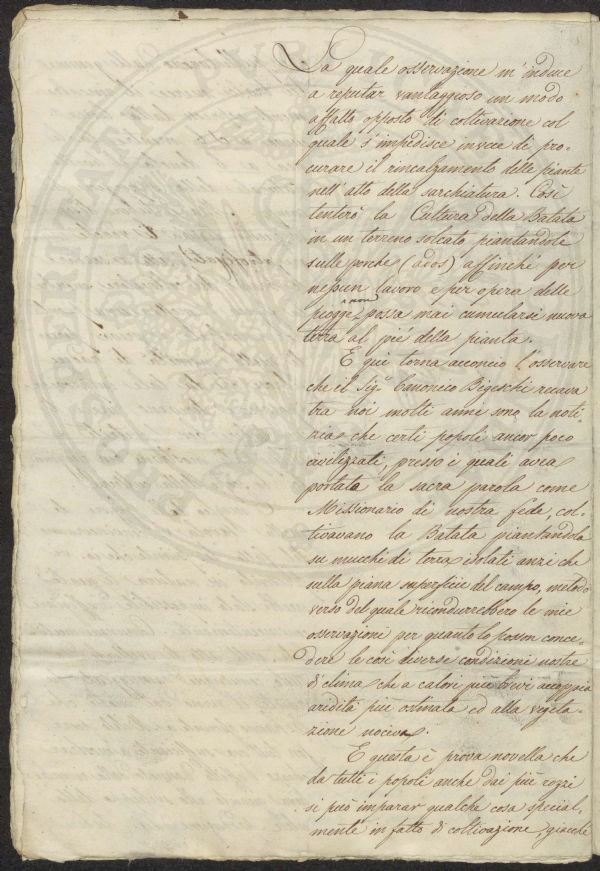 La quale osservazione m'induce
a reputar vantaggioso un modo
affatto opposto di coltivazione col
quale s'impedisce invece di pro-
curare il rincalzamento delle piante
nell'atto della sarchiatura. Così
tenterò la Cultura della Batata
in un terreno solcato piantandole
sulle porche (ados) affinché per
nessun lavoro e per opera delle
piogge non possa mai cumularsi nuova
terra al piè della pianta.
E qui torna acconcio l'osservare
che il Sig.e Canonico Bigeschi recava
tra noi molti anni sono la noti-
zia che certi popoli ancor poco
civilizzati, presso i quali avea
portata la sacra parola come
Missionario di nostra fede, col-
tivavano la Batata piantandola
su mucchi di terra isolati anzi che
sulla piana superficie del campo, metodo
verso del quale ricondurrebbero le mie
osservazioni per quanto lo posson conce-
dere le così diverse condizioni nostre
di clima che a calori più brevi accoppia
aridità più ostinata ed alla vegeta-
zione nociva.
E questa è prova novella che
da tutti i popoli anche dai più rozzi
si può imparar qualche cosa special-
mente in fatto di coltivazione, giacché